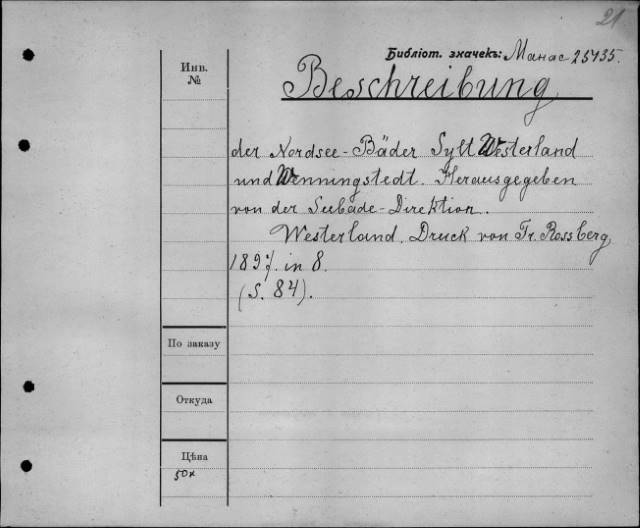 21
Библіот. значекъ: Манас 25435.
Инв.
№
Beschreibung
der Nordsee-Bäder Sylt Westerland
und Wenningstedt. Herausgegeben
von der Seebade-Direktion.
Westerland. Druck von Fr. Rossberg,
1897. in 8.
(S. 84).
По заказу
Откуда
Цѣна
50к